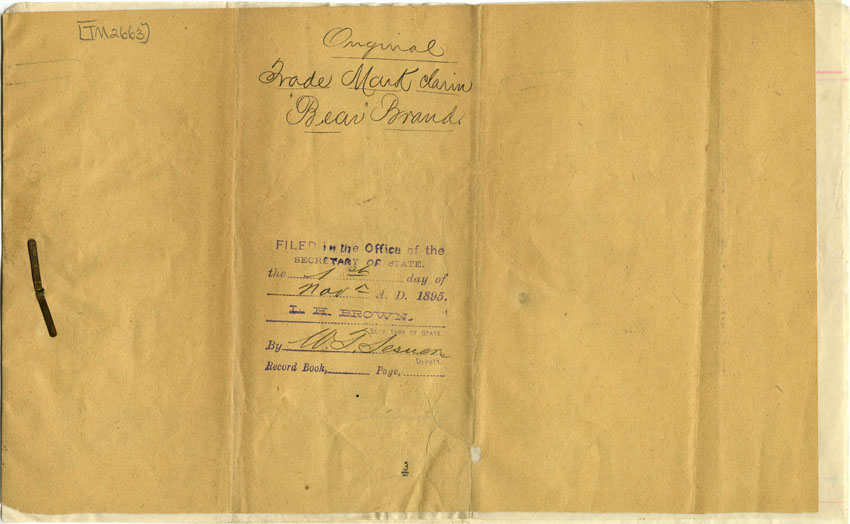 [TM2663]
Original
Trade Mark claim
"Bear" Brand.
FILED in the Office of the
SECRETARY OF STATE,
the 1st day of
Nov r A. D. 1895.
L. H. BROWN.
SECRETARY OF STATE.
By W. T. Sesnon
DEPUTY.
Record Book, Page,
3